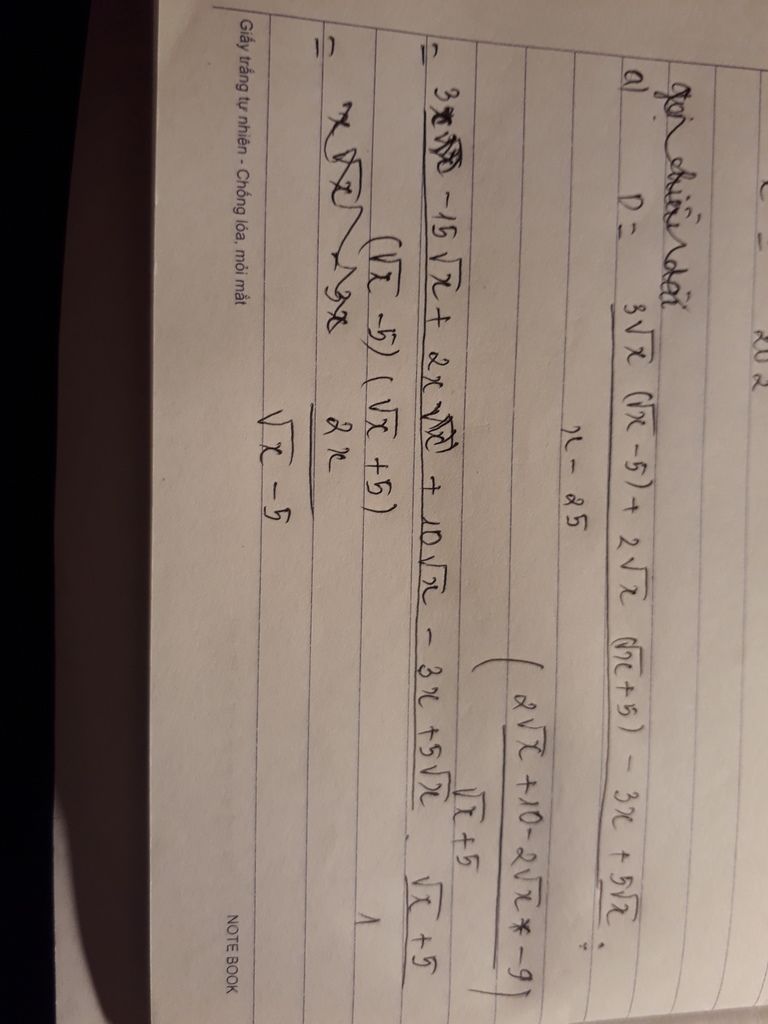 x = 202
gọi chiều dài
a) D = 3√x (√x - 5) + 2√x (√x + 5) - 3x + 5√x :
x - 25
(2√x + 10 - 2√x - 9)
√x + 5
= 3x - 15√x + 2x + 10√x - 3x + 5√x . √x + 5
(√x - 5) (√x + 5) 1
= 2x
√x - 5
Giấy trắng tự nhiên - Chống lóa, mỏi mắt NOTE BOOK